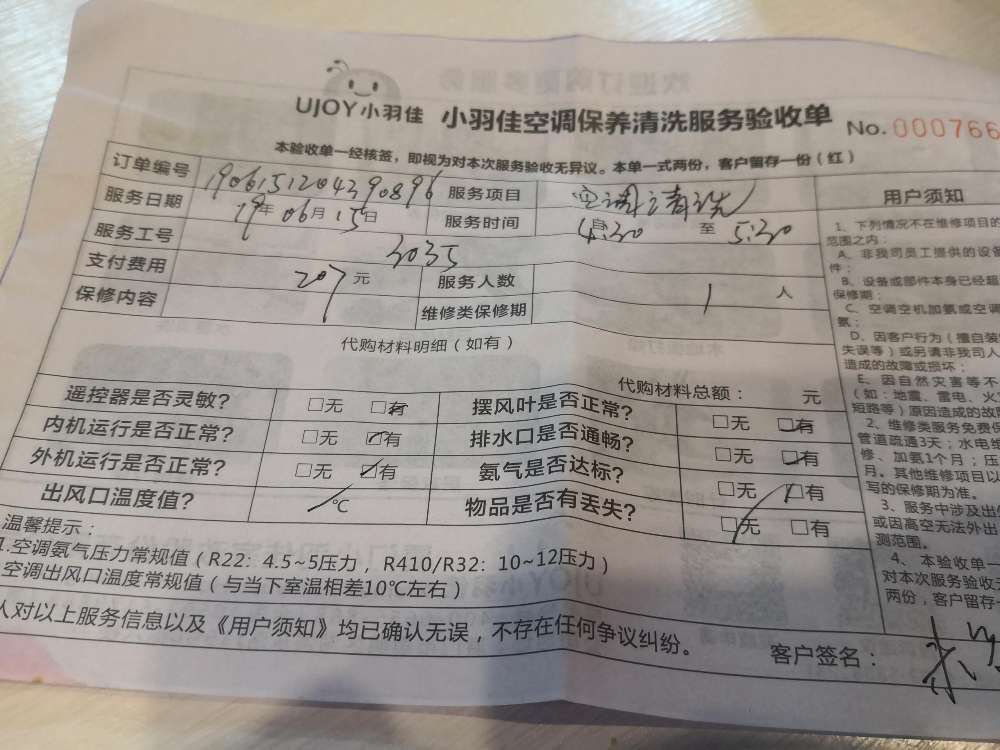 UJOY小羽佳 小羽佳空调保养清洗服务验收单 No. 000766
本验收单一经核签，即视为对本次服务验收无异议。本单一式两份，客户留存一份（红）
订单编号 1906151204390896 服务项目 空调清洗
服务日期 19年06月15日 服务时间 4:30 至 5:30
服务工号 3035
支付费用 207元 服务人数 1 人
保修内容 维修类保修期
代购材料明细（如有）
代购材料总额： 元
遥控器是否灵敏？ □无 □有 摆风叶是否正常？ □无 □有
内机运行是否正常？ □无 ☑有 排水口是否通畅？ □无 □有
外机运行是否正常？ □无 ☑有 氨气是否达标？ □无 □有
出风口温度值？ ℃ 物品是否有丢失？ □无 □有
温馨提示：
1.空调氨气压力常规值（R22：4.5~5压力，R410/R32：10~12压力）
空调出风口温度常规值（与当下室温相差10℃左右）
人对以上服务信息以及《用户须知》均已确认无误，不存在任何争议纠纷。
客户签名：
用户须知
1、下列情况不在维修项目的
范围之内：
A、非我司员工提供的设备
件；
B、设备或部件本身已经超
保修期；
C、空调空机加氨或空调
氨；
D、因客户行为（擅自装
失误等）或另请非我司人
造成的故障或损坏；
E、因自然灾害等不
（如：地震、雷电、火
短路等）原因造成的故
2、维修类服务免费保
管道疏通3天；水电维
修、加氨1个月；压
月。其他维修项目以
写的保修期为准。
3、服务中涉及出
或因高空无法外出
测范围。
4、本验收单一
对本次服务验收
两份，客户留存